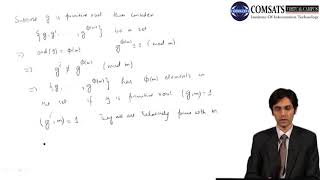 Suppose g is primitive root then consider
{g, g², , g^Φ(m)} be a set
⇒ ord(g) = Φ(m) g^Φ(m) ≡ 1 (mod m)
⇒ gⁱ ≢ g (mod m)
⇒ {g, , g^Φ(m)} has Φ(m) elements in
the set if g is primitive root (g,m)=1
(gⁱ,m)=1 They all are relatively prime with m
COMSATS VIRTUAL CAMPUS
Institute Of Information Technology